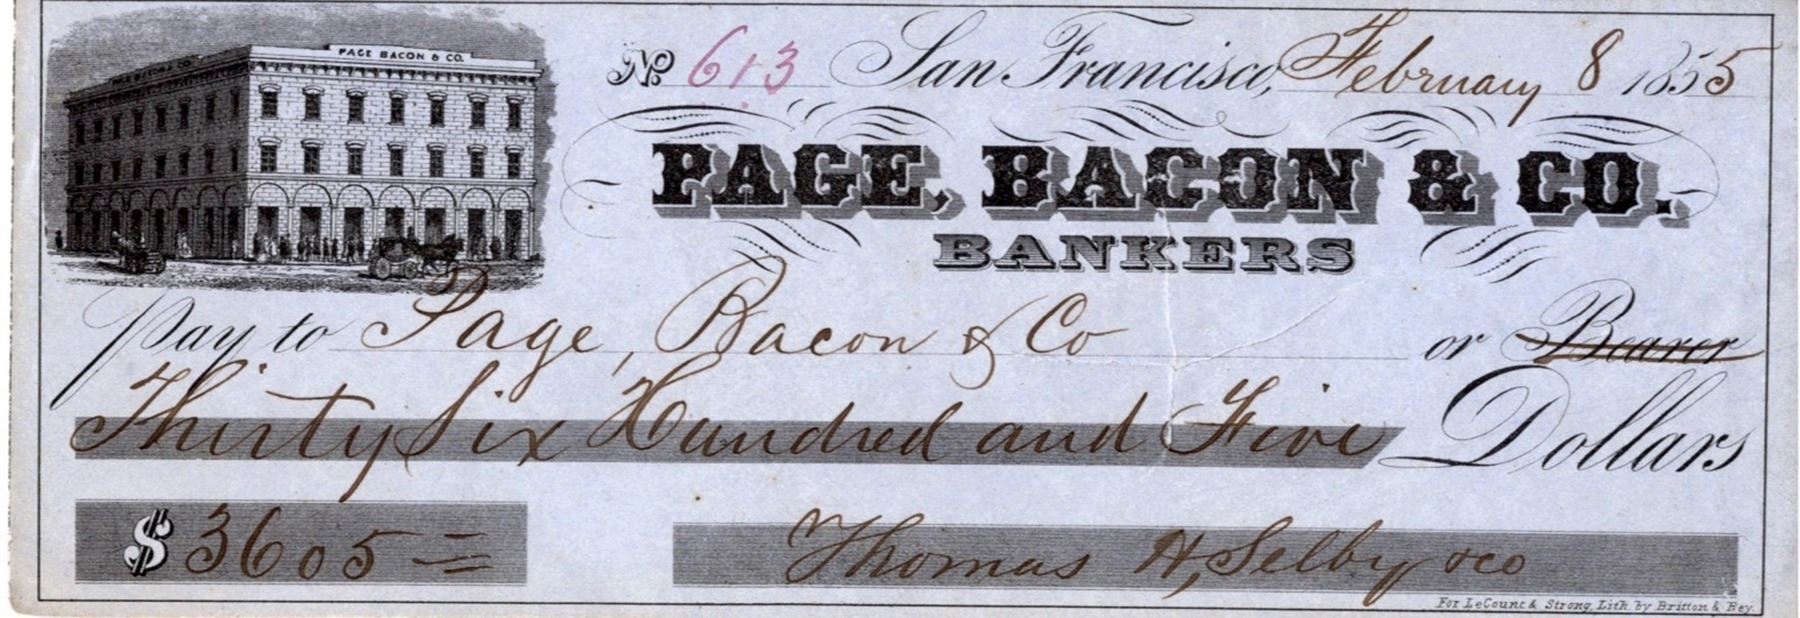 PAGE BACON & CO.
PAGE BACON & CO.
No 613 San Francisco, February 8 1855
PAGE, BACON & CO.
BANKERS
Pay to Page, Bacon & Co or Bearer
Thirty Six Hundred and Five Dollars
$ 3605 =
Thomas H, Selby & co
For LeCount & Strong, Lith. by Britton & Rey.